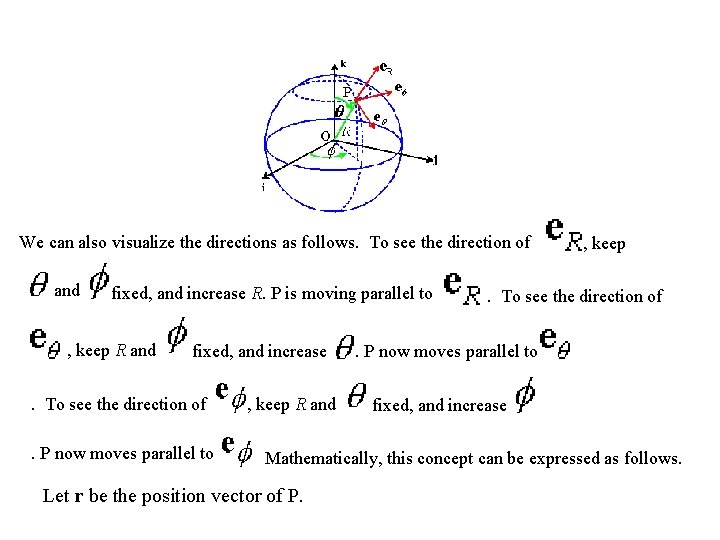 k
e_R
P
e_ϕ
θ
e_θ
O
R
ϕ
j
i
We can also visualize the directions as follows. To see the direction of e_R , keep
θ and ϕ fixed, and increase R. P is moving parallel to e_R . To see the direction of
e_θ , keep R and ϕ fixed, and increase θ . P now moves parallel to e_θ
. To see the direction of e_ϕ , keep R and θ fixed, and increase ϕ
. P now moves parallel to e_ϕ Mathematically, this concept can be expressed as follows.
Let r be the position vector of P.